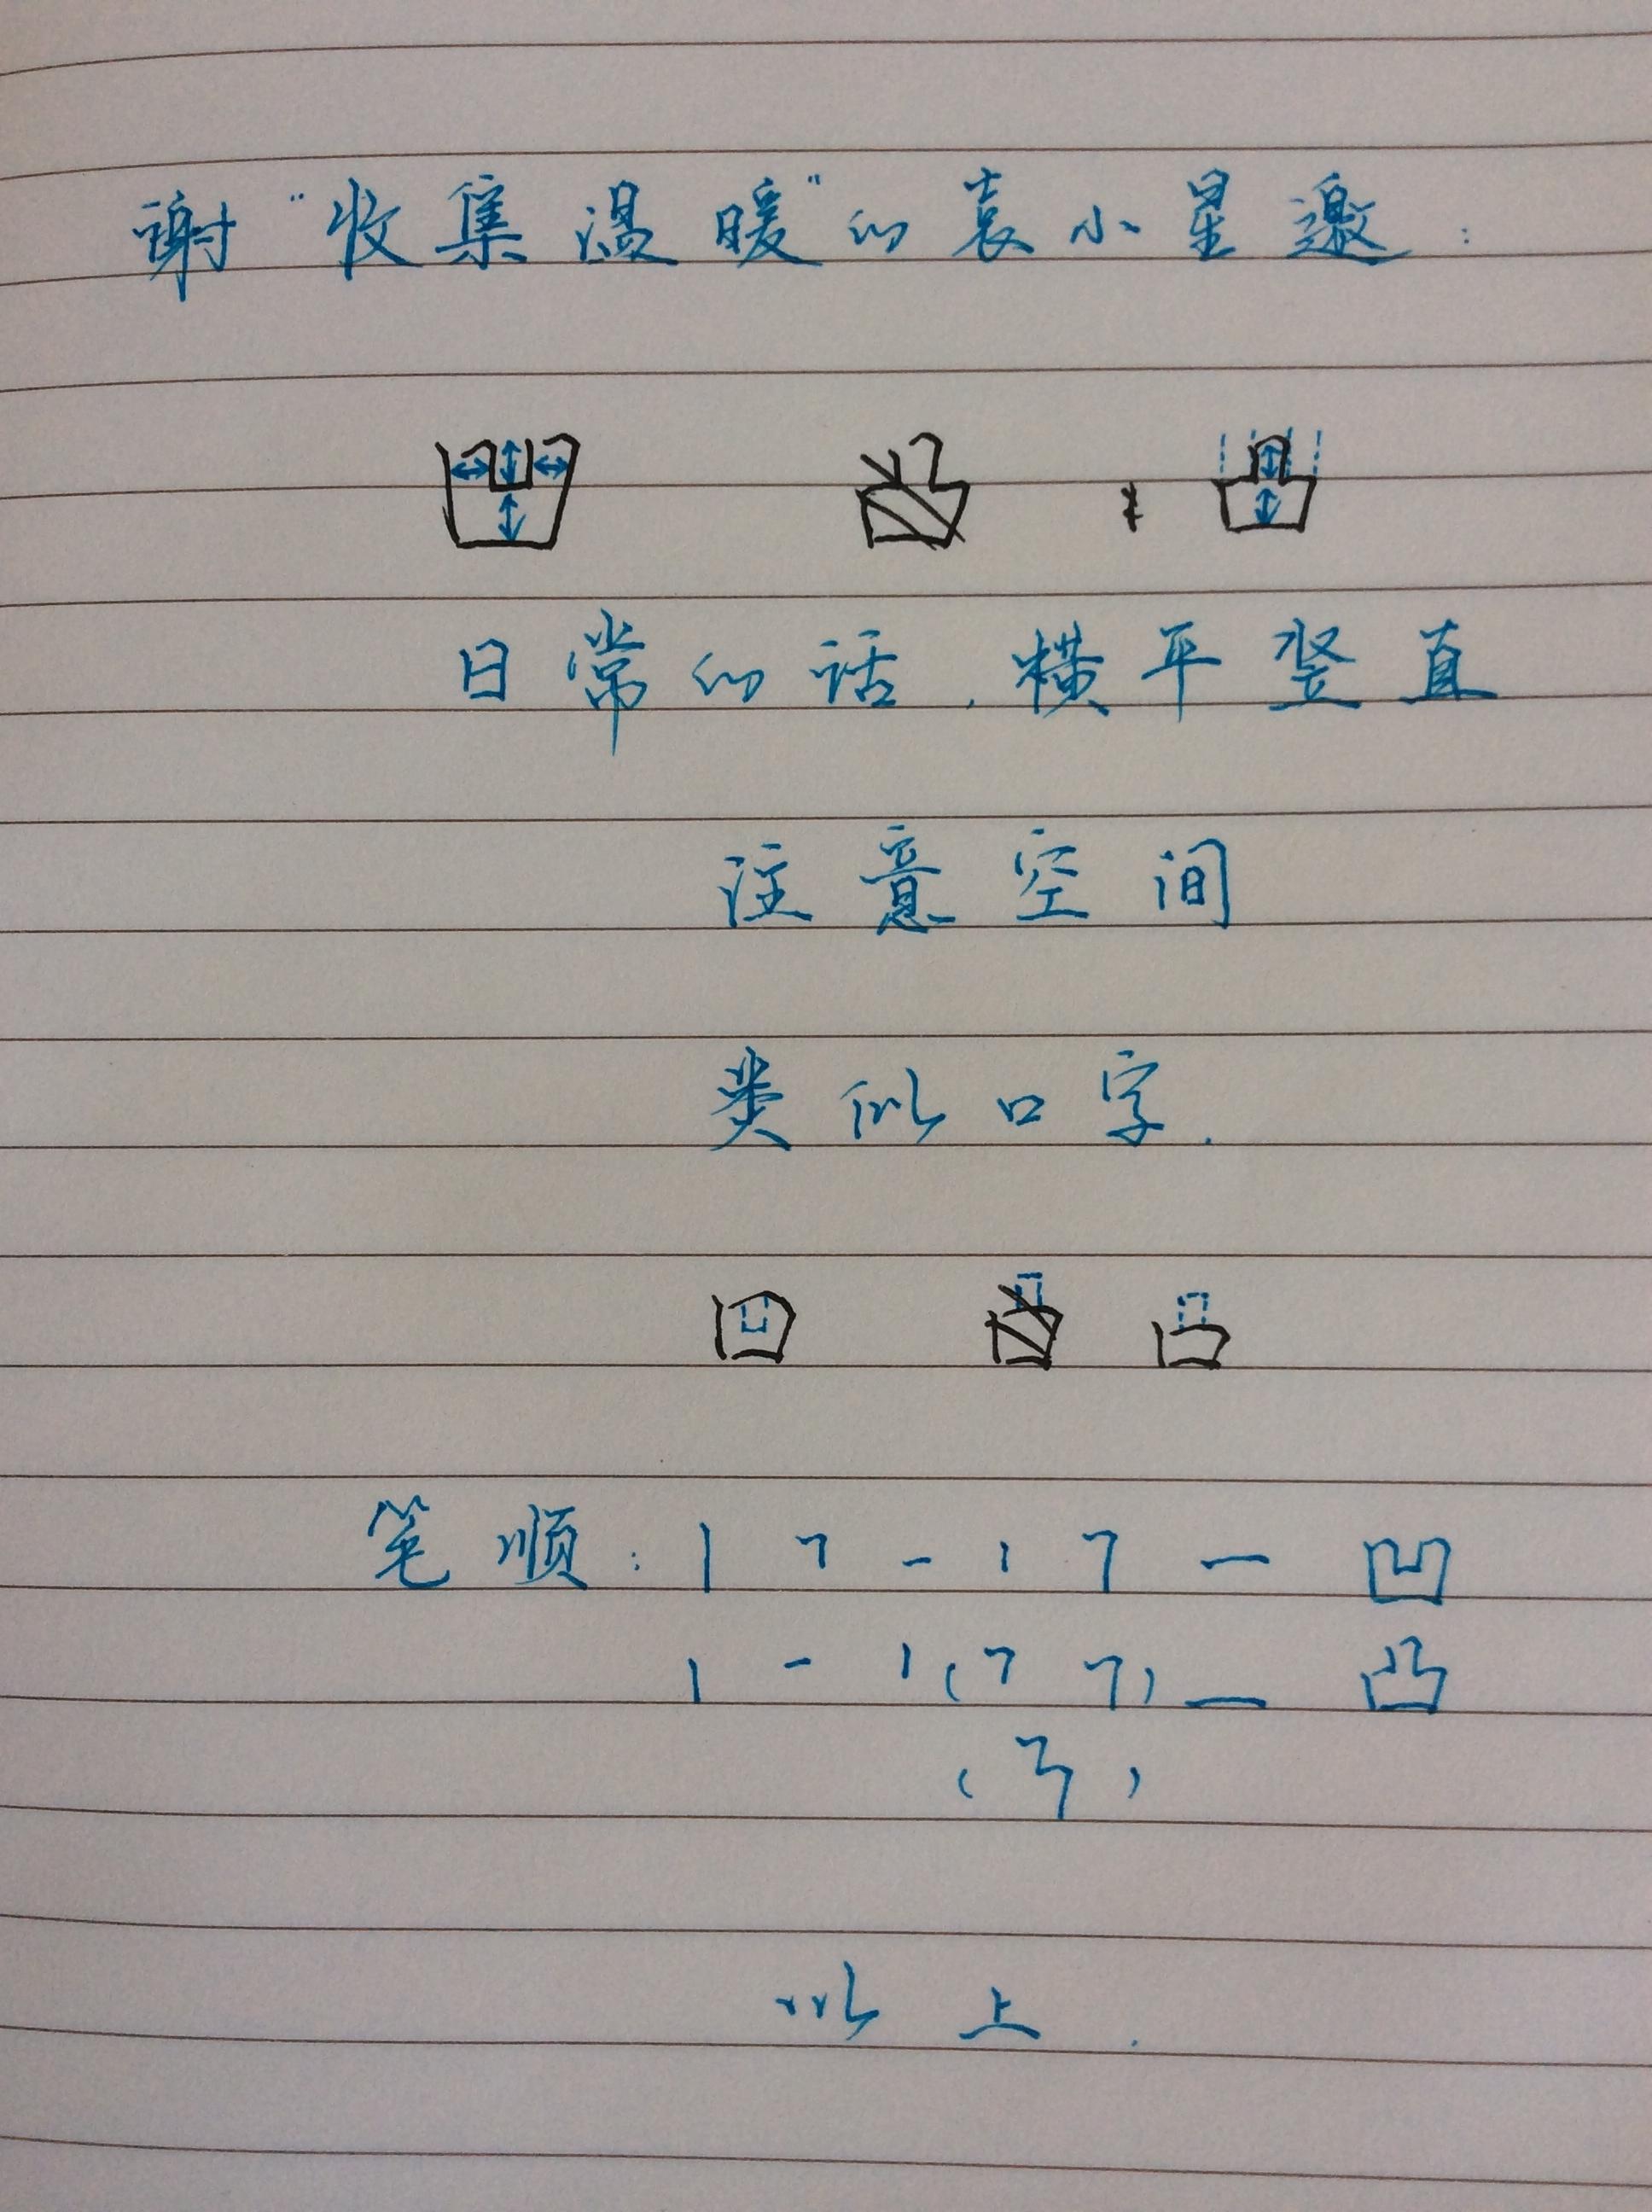 谢“收集温暖”的袁小星邀：
凹 凸 凸
日常的话，横平竖直
注意空间
类似口字.
笔顺：丨 𠃍 一 丨 𠃍 一 凹
丨 一 丨（𠃍 𠃍）一 凸
（㇎）
以上.